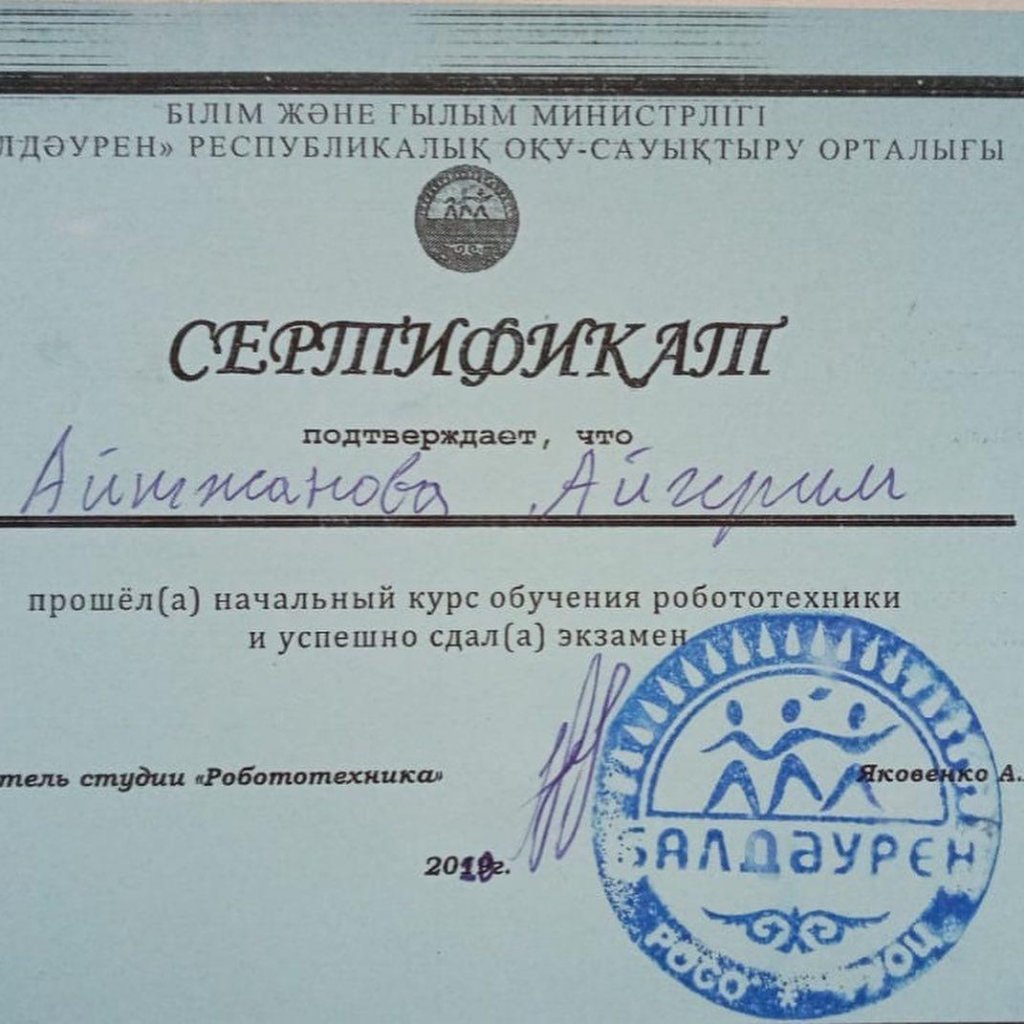 БІЛІМ ЖӘНЕ ҒЫЛЫМ МИНИСТРЛІГІ
ЛДӘУРЕН» РЕСПУБЛИКАЛЫҚ ОҚУ-САУЫҚТЫРУ ОРТАЛЫҒЫ
СЕРТИФИКАТ
подтверждает, что
Айтжанова Айгерим
прошёл(а) начальный курс обучения робототехники
и успешно сдал(а) экзамен
тель студии «Робототехника» Яковенко А.
БАЛДӘУРЕН
РОСО * РУОЦ